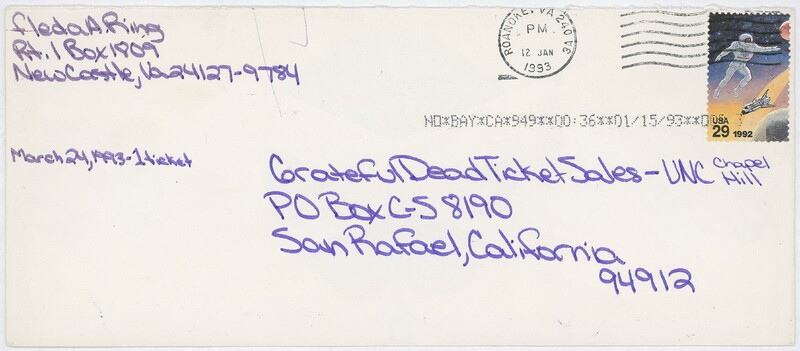 Fleda A. Ring
Rt. 1 Box 1909
New Castle, Va 24127-9784
ROANOKE, VA 240
PM
12 JAN
1993
3A
USA
29 1992
NO*BAY*CA*949**00:36**01/15/93**0
March 24, 1993-1 ticket
Grateful Dead Ticket Sales - UNC Chapel Hill
PO Box C-S 8190
San Rafael, California
94912